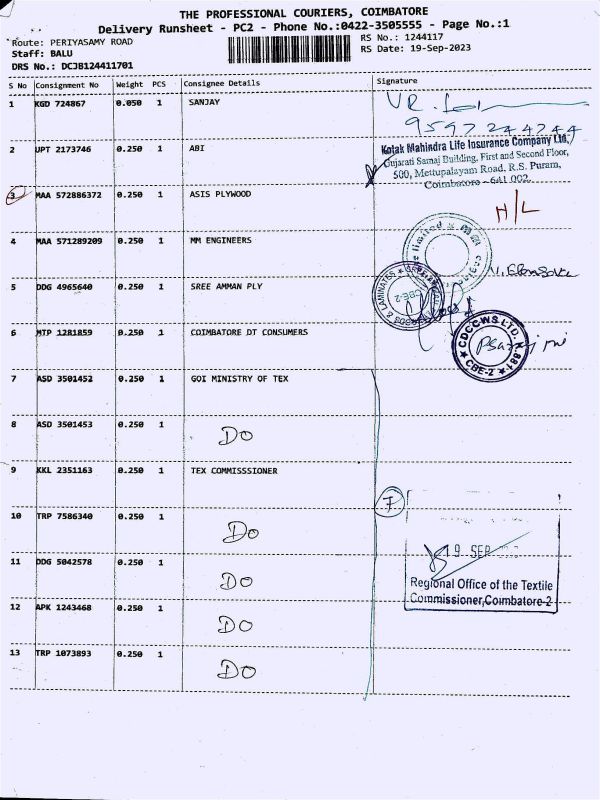 THE PROFESSIONAL COURIERS, COIMBATORE
Delivery Runsheet - PC2 - Phone No.:0422-3505555 - Page No.:1
Route: PERIYASAMY ROAD
RS No.: 1244117
Staff: BALU
RS Date: 19-Sep-2023
DRS No.: DCJB124411701
S No Consignment No Weight PCS Consignee Details Signature
1 KGD 724867 0.050 1 SANJAY
9597244244
2 UPT 2173746 0.250 1 ABI
Kotak Mahindra Life Insurance Company Ltd,
Gujarati Samaj Building, First and Second Floor,
500, Mettupalayam Road, R.S. Puram,
Coimbatore - 641 002.
3 MAA 572886372 0.250 1 ASIS PLYWOOD
H/L
4 MAA 571289209 0.250 1 MM ENGINEERS
5 DDG 4965640 0.250 1 SREE AMMAN PLY
& LAMINATES
CBE-2
6 MTP 1281859 0.250 1 COIMBATORE DT CONSUMERS
CDCCWS LTD. K.1881
CBE-2
7 ASD 3501452 0.250 1 GOI MINISTRY OF TEX
8 ASD 3501453 0.250 1 DO
9 KKL 2351163 0.250 1 TEX COMMISSSIONER
7
10 TRP 7586340 0.250 1 DO
19 SEP
11 DDG 5042578 0.250 1 DO
Regional Office of the Textile
Commissioner, Coimbatore-2
12 APK 1243468 0.250 1 DO
13 TRP 1073893 0.250 1 DO